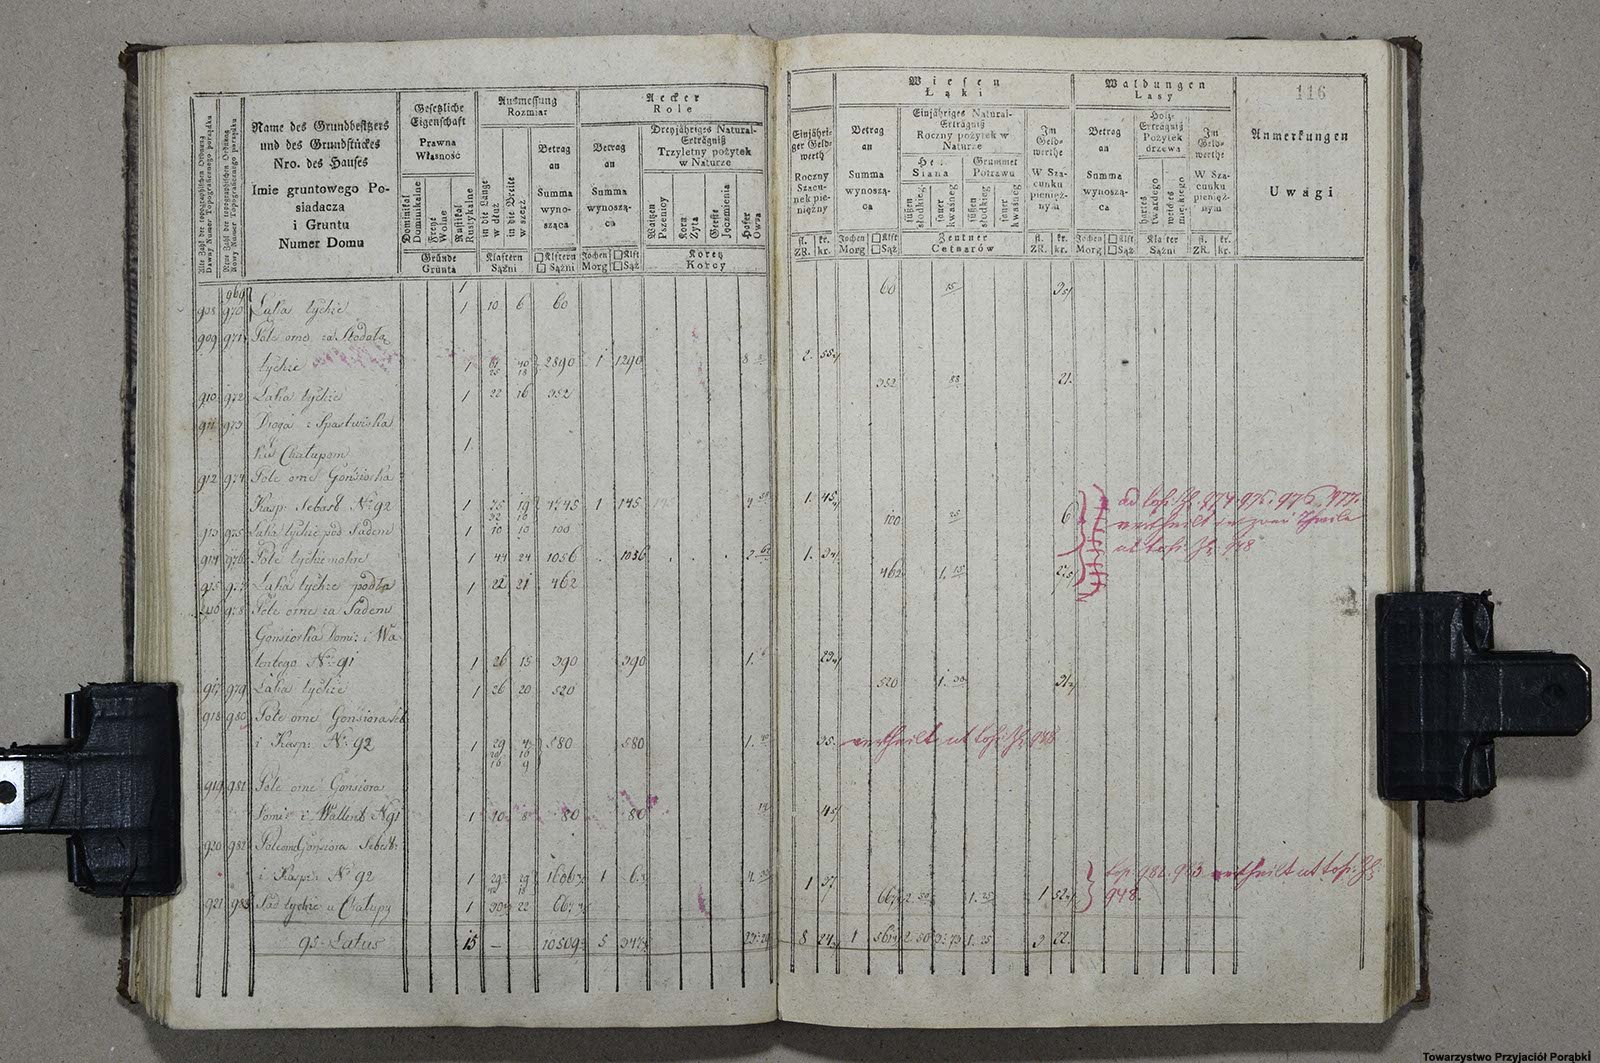 116
Alte Zahl der topographischen Ordnung
Dawny Numer Topograficznego porządku
Neue Zahl der topographischen Ordnung
Nowy Numer Topograficznego porządku
Name des Grundbesitzers
und des Grundstückes
Nro. des Hauses
Imie gruntowego Po-
siadacza
i Gruntu
Numer Domu
Gesetzliche
Eigenschaft
Prawna
Własność
Dominikal
Dominikalne
Freye
Wolne
Rustikal
Rustykalne
Gründe
Grunta
Ausmessung
Rozmiar
in die Länge
w dłuż
in die Breite
w szerz
Klaftern
Sążni
Betrag
an
Summa
wyno-
sząca
□ Klftern
□ Sążni
Aecker
Role
Betrag
an
Summa
wynoszą-
ca
Jochen □ Klft
Morg □ Sąż
Dreyjähriges Natural-
Erträgniß
Trzyletny pożytek
w Naturze
Waitzen
Pszenicy
Korn
Żyta
Gerste
Jęczmienia
Hafer
Owsa
Koretz
Korcy
Einjähri-
ger Geld-
werth
Roczny
Szacu-
nek pie-
niężny
fl. kr.
ZR. kr.
Wiesen
Łąki
Betrag
an
Summa
wynoszą-
ca
Jochen □ Klft
Morg □ Sąż
Einjähriges Natural-
Erträgniß
Roczny pożytek w
Naturze
Heu
Siana
Grummet
Potrawu
süßen
słodkieg
sauer
kwaśneg
süßen
słodkieg
sauer
kwaśneg
Zentner
Cetnarów
Im
Geld-
werthe
W Sza-
cunku
pienięż-
nym
fl. kr.
ZR. kr.
Waldungen
Lasy
Betrag
an
Summa
wynoszą-
ca
Jochen □ Klft
Morg □ Sąż
Holz-
Erträgniß
Pożytek
drzewa
hartes
twardego
weiches
miękiego
Klafter
Sążni
Im
Geld-
werthe
W Sza-
cunku
pienięż-
nym
fl. kr.
ZR. kr.
Anmerkungen
Uwagi
969
908 970 Łąka tychże 1 10 6 60 60 15
909 971 Pole orne za Stodołą
tychże 1 2890 1 1290 2
910 972 Łąka tychże 1 22 16 352 352 88 21
911 973 Droga z Spastwiska
ku Chałupom 1
912 974 Pole orne Gonsiorka
Kasp: Sebast N: 92 1 1 145 1 45
913 975 Łąka tychże pod Sadem 1 10 10 100 100 25 6
914 976 Pole tychże 1 44 24 1056 1056 1
915 977 Łąka tychże podla 1 22 21 462 462 1. 15
978 Pole orne za Sadem
Gonsiorka Domi: i Wa-
lentego N: 91 1 26 15 390 390 1.
917 979 Łąka tychże 1 26 20 520 520 1. 30
918 980 Pole orne Gonsiora Seb
i Kasp: N: 92 1 580 580 1. 35. vertheilt ut top: Z: 948
919 981 Pole orne Gonsiora
Domi: i Wallent N 91 1 10 8 80 80
920 982 Pole orne Gonsiora Sebast:
i Kasp: N: 92 1 1 1 37
921 983 Sad tychże u Chałupy 1 22 1. 25
ad top: Z: 974. 975. 976. 977.
vertheilt in zwei Theile
ut top: Z: 948
top: 982. 983 vertheilt ut top: Z:
948.
95 - Latus 15 — 10509 5 8 1 1. 25 3 22.
Towarzystwo Przyjaciół Porąbki